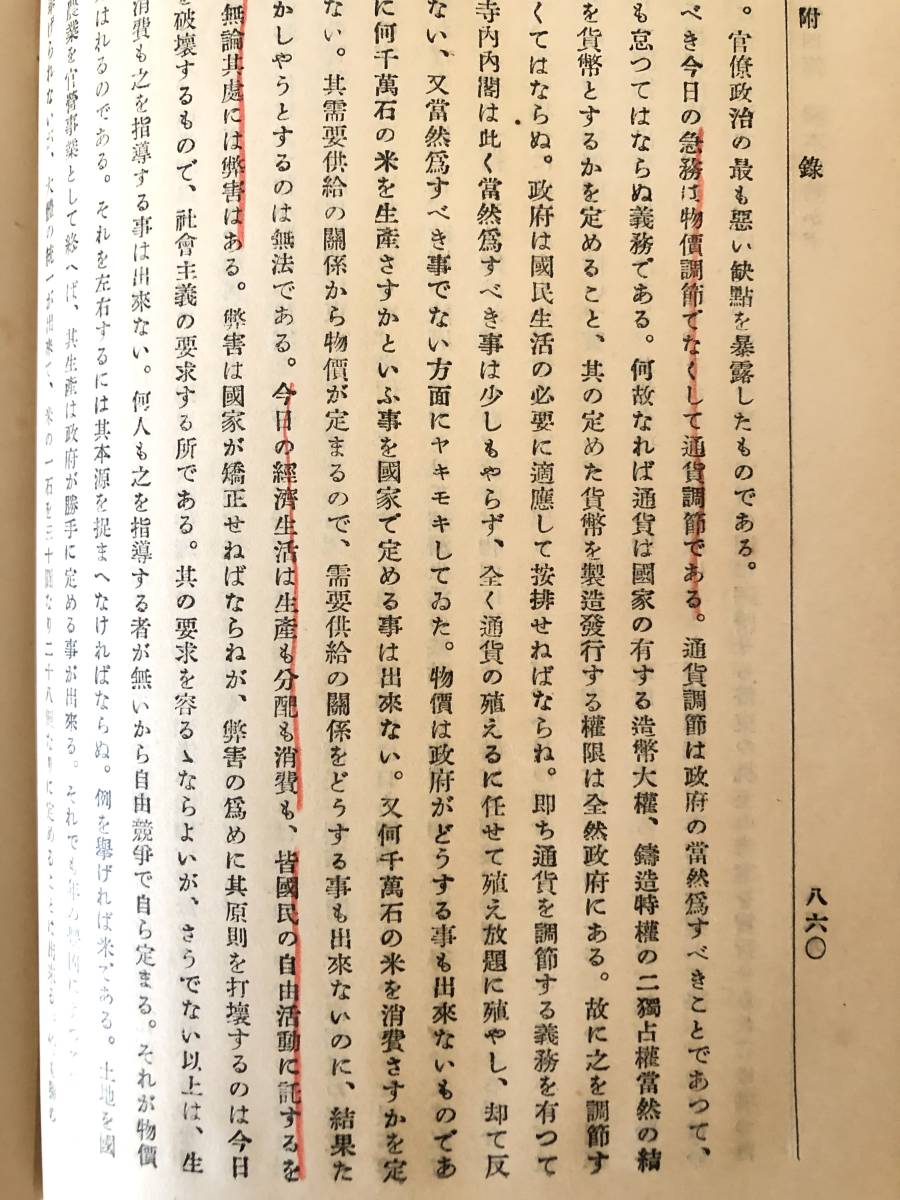 附錄
八六〇
。官僚政治の最も惡い缺點を暴露したものである。
べき今日の急務は物價調節でなくして通貨調節である。通貨調節は政府の當然爲すべきことであつて、
も怠つてはならぬ義務である。何故なれば通貨は國家の有する造幣大權、鑄造特權の二獨占權當然の結
を貨幣とするかを定めること、其の定めた貨幣を製造發行する權限は全然政府にある。故に之を調節す
くてはならぬ。政府は國民生活の必要に適應して按排せねばならね。即ち通貨を調節する義務を有つて
寺内内閣は此く當然爲すべき事は少しもやらず、全く通貨の殖えるに任せて殖え放題に殖やし、却て反
ない、又當然爲すべき事でない方面にヤキモキしてゐた。物價は政府がどうする事も出來ないものであ
に何千萬石の米を生產さすかといふ事を國家で定める事は出來ない。又何千萬石の米を消費さすかを定
ない。其需要供給の關係から物價が定まるので、需要供給の關係をどうする事も出來ないのに、結果た
かしやうとするのは無法である。今日の經濟生活は生產も分配も消費も、皆國民の自由活動に託するを
無論其處には弊害はある。弊害は國家が矯正せねばならねが、弊害の爲めに其原則を打壞するのは今日
を破壞するもので、社會主義の要求する所である。其の要求を容るゝならよいが、さうでない以上は、生
消費も之を指導する事は出來ない。何人も之を指導する者が無いから自由競爭で自ら定まる。それが物價
はれるのである。それを左右するには其本源を捉まへなければならぬ。例を擧げれば米である。土地を國
農業を官營事業として終へば、其生產は政府が勝手に定める事が出來る。それでも年の
米の一石を三十圓なり二十八圓なりに定めることは出來る